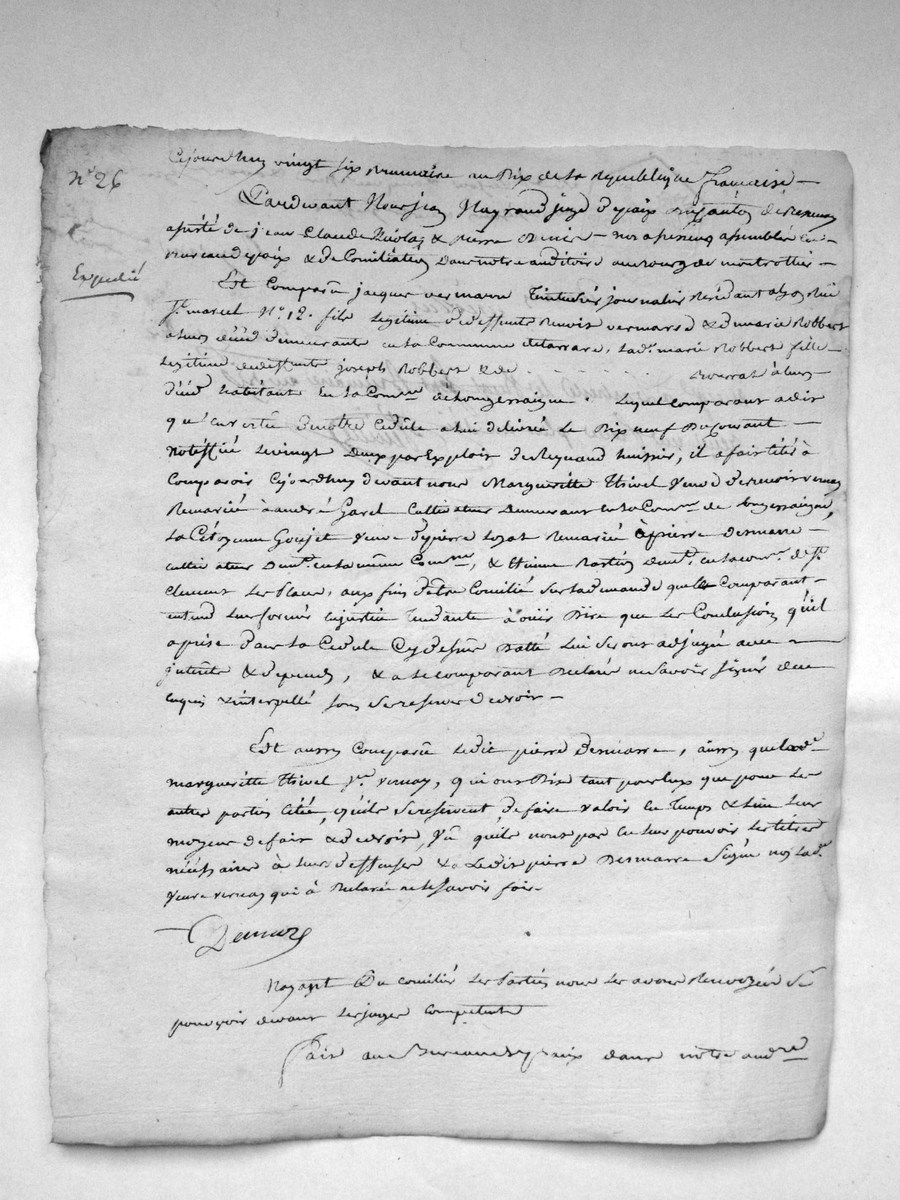 N° 26
Expedié
Cejourdhuy vingt six Brumaire an Dix de la République francaise —
Pardevant Nous juge depaix Du canton de
assisté de jean Claude Nicolas & pierre — nos assesseurs assemblés en
Bureau depaix & de Conciliation Dans notre auditoire au bourg de montrottier —
Est Comparu jacques vermare Teinturier journalier Residant a Lyon Rue
St. marcel N° 12. fils Legitime de deffunt Benoit vermare & de marie Robbert
a leurs déceds demeurante en la Commune delaxare, lad. marie Robbert fille
Legitime de deffunts joseph Robbert & de . . . . . a leurs
déceds habitants En la Comm. de Longessaigne. Lequel Comparant a dit
qu'en vertu de notre Cedule a lui delivrée le Dix neuf Du Courant —
Notiffiée le vingt Deux par Exploit de Reynaud huissier, il a fait cité à
Comparoir Cejourdhuy devant nous Marguerite Thivel veuve de Benoit vernay
Remariée à andré Garel Cultivateur Demeurant en la Comm. de Longessaigne,
La Citoyenne Goujet veuve de pierre Lozat Remariée à pierre Desmare —
cultivateur Demt. en la même Comm., & Etienne Ratton Demt. en la com. de St.
Clement les places, aux fins d'etre Concilié sur la demande que le Comparant
entend leur former En justice Tendante à ouir Dire que les Conclusions qu'il
a prise dans la Cedule Cy dessus Datté Lui seront adjugé avec
interets & depends, & a le comparant Declaré ne savoir signer de ce
enquis & interpellé sous ses reserves de droit —
Est aussy Comparu ledit pierre Desmarre, aussy que lade.
marguerite Thivel ve. vernay, qui ont Dit tant pour eux que pour les
autres parties citée, qu'ils se reservent de faire valoir en Temps & lieu leurs
moyens de fait & de droit, vû qu'ils n'ont pas en leur pouvoir les titres
nécessaires à leurs deffenses & a Ledit pierre Desmarre signé non lad.
veuve vernay qui à Declarée ne le savoir fais.
Demare
N'ayant Pu concilier les Parties nous les avons Renvoyées se
pourvoir devant les juges Compétents
Fait au Bureau de paix dans notre audre